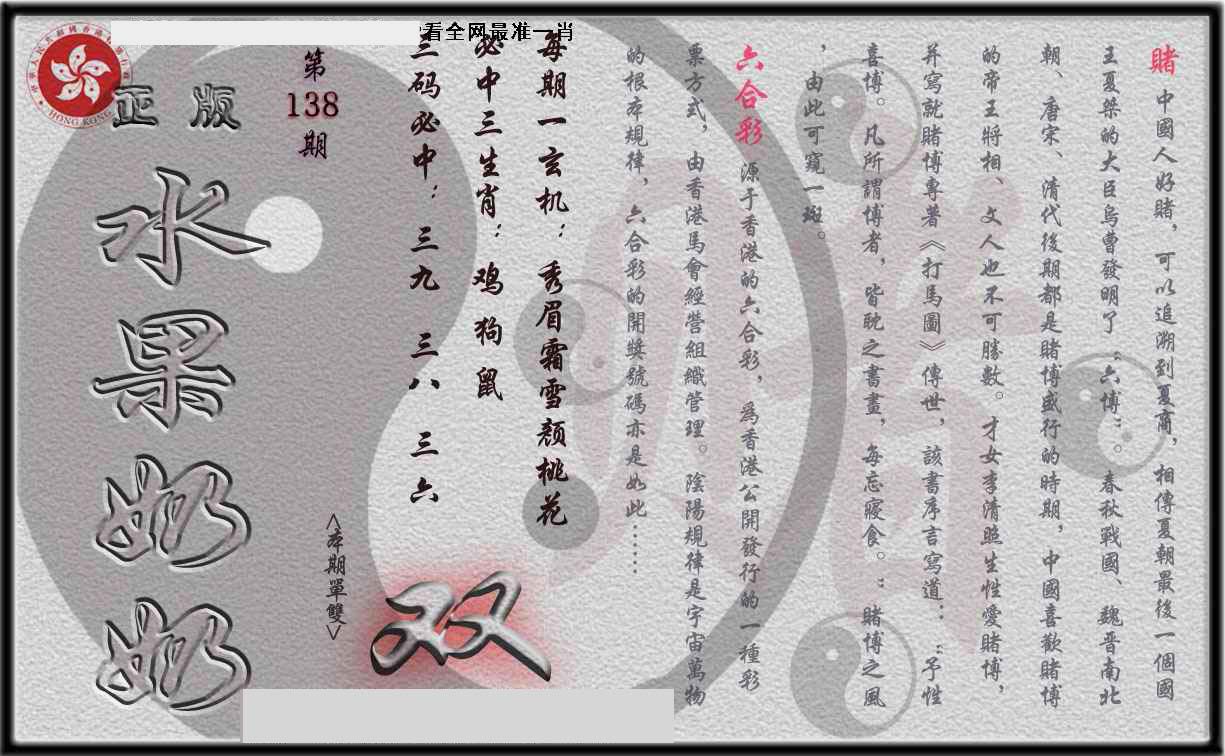 賭 中國人好賭，可以追溯到夏商，相傳夏朝最後一個國
王夏桀的大臣烏曹發明了“六博”。春秋戰國、魏晋南北
朝、唐宋、清代後期都是賭博盛行的時期，中國喜歡賭博
的帝王將相、文人也不可勝數。才女李清照生性愛賭博，
并寫就賭博專著《打馬圖》傳世，該書序言寫道：“予性
喜博。凡所謂博者，皆耽之晝，每忘寢食。”賭博之風
，由此可窺一斑。
六合彩 源于香港的六合彩，爲香港公開發行的一種彩
票方式，由香港馬會經營組織管理。陰陽規律是宇宙萬物
的根本規律，六合彩的開獎號碼亦是如此……
看全网最准一肖
每期一玄机：秀眉霜雪颜桃花
必中三生肖：鸡狗鼠
三码必中：三九 三八 三六
<本期單雙>
双
第
138
期
正版
水果奶奶
HONG KONG